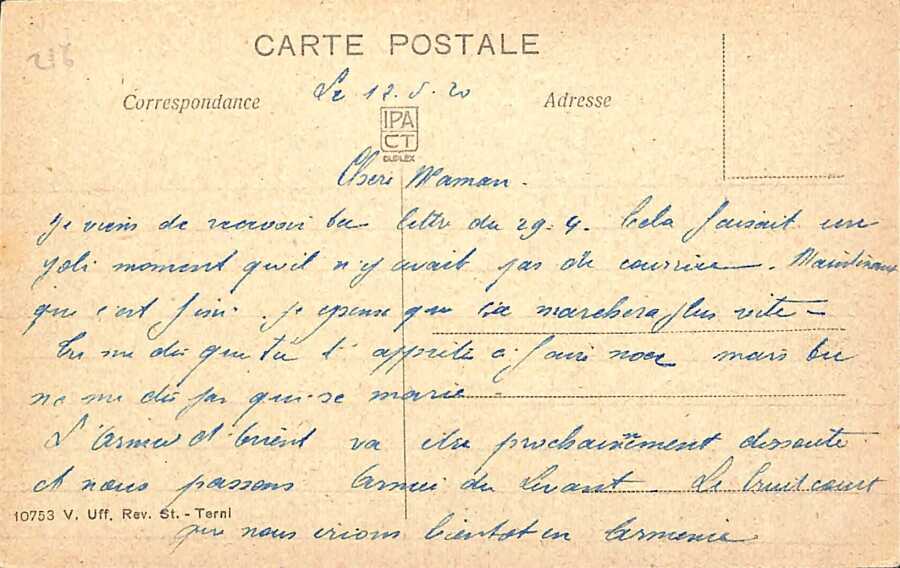 216
CARTE POSTALE
Correspondance
Le 12.5.20
Adresse
IPA
CT
DUPLEX
Chere Maman.
Je viens de recevoir ta lettre du 29.4. Cela faisait un
joli moment qu'il n'y avait pas de courrier. Maintenant
que c'est fini. je pense que ça marchera plus vite
Tu me dis que tu t'apprete a faire noce mais tu
ne me dis pas qui se marie
L'Armee d'Orient va etre prochainement dissoute
et nous passons Armee du Levant. Le bruit court
10753 V. Uff. Rev. St. - Terni
que nous irions bientot en Armenie